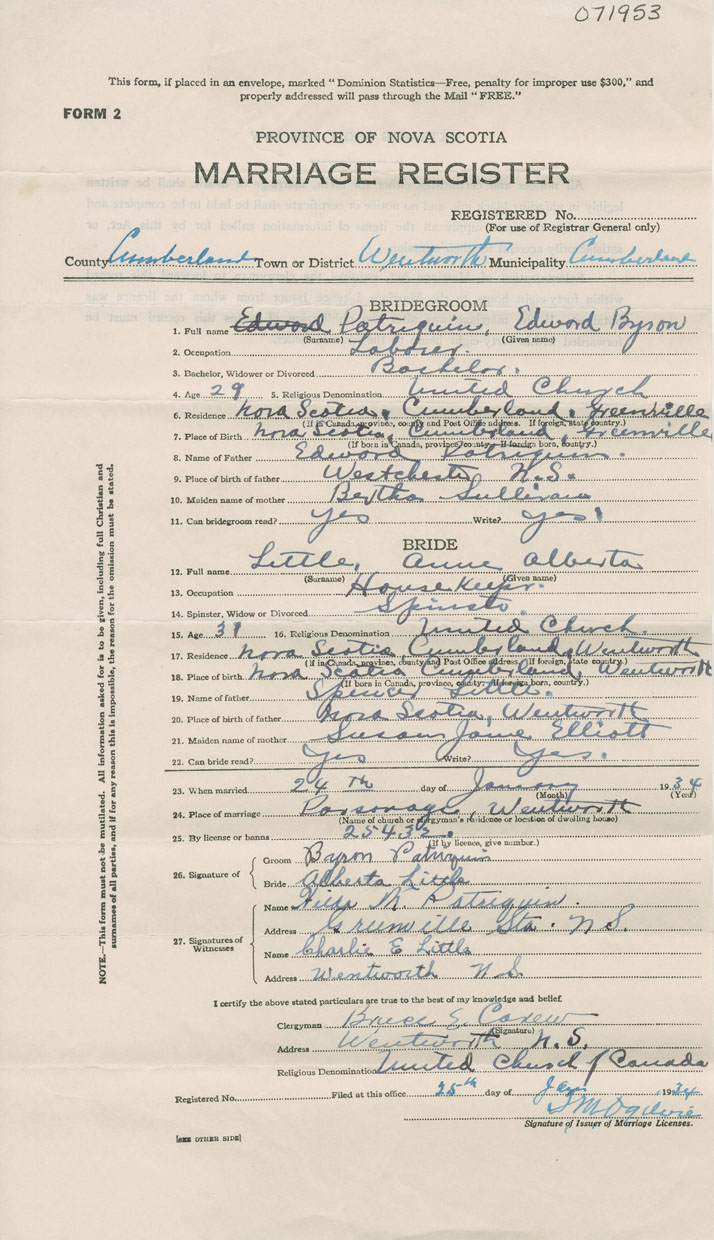 071953
This form, if placed in an envelope, marked "Dominion Statistics—Free, penalty for improper use $300," and
properly addressed will pass through the Mail "FREE."
FORM 2
PROVINCE OF NOVA SCOTIA
MARRIAGE REGISTER
REGISTERED No.
(For use of Registrar General only)
County Cumberland Town or District Wentworth Municipality Cumberland
BRIDEGROOM
1. Full name Edword Patriquin, Edword Byron
(Surname) (Given name)
2. Occupation Laborer.
3. Bachelor, Widower or Divorced Bachelor.
4. Age 29 5. Religious Denomination United Church
6. Residence Nova Scotia, Cumberland, Greenville
(If in Canada, province, county and Post Office address. If foreign, state country.)
7. Place of Birth Nova Scotia, Cumberland, Greenville
(If born in Canada, province, county. If foreign born, country.)
8. Name of Father Edword Patriquin.
9. Place of birth of father Westchester N.S.
10. Maiden name of mother Bertha Sullivan
11. Can bridegroom read? Yes Write? Yes
BRIDE
12. Full name Little, Anne Alberta
(Surname) (Given name)
13. Occupation House Keeper.
14. Spinster, Widow or Divorced Spinster.
15. Age 16. Religious Denomination United Church.
17. Residence Nova Scotia, Cumberland, Wentworth
(if in Canada, province, county and Post Office address. If foreign, state country.)
18. Place of birth Nova Scotia Cumberland, Wentworth
(If born in Canada, province, county. If foreign born, country.)
19. Name of father Spencer Little.
20. Place of birth of father Nova Scotia, Wentworth
21. Maiden name of mother Susan Jane Elliott
22. Can bride read? Yes Write? Yes.
23. When married 24 Th day of January 1934
(Month) (Year)
24. Place of marriage Parsonage, Wentworth
(Name of church or clergyman's residence or location of dwelling house)
25. By license or banns 25432.
(If by licence, give number.)
26. Signature of
Groom Byron Patriquin
Bride Alberta Little
27. Signatures of Witnesses
Name M. Patriquin.
Address Greenville Sta. N.S.
Name Charlie E Little
Address Wentworth N.S.
I certify the above stated particulars are true to the best of my knowledge and belief.
Clergyman Bruce S.
(Signature)
Address Wentworth N.S.
Religious Denomination United Church of Canada
Registered No. Filed at this office 25th day of Jan 1934
Ogilvie
Signature of Issuer of Marriage Licenses.
[SEE OTHER SIDE]
NOTE.—This form must not be mutilated. All information asked for is to be given, including full Christian and
surnames of all parties, and if for any reason this is impossible, the reason for the omission must be stated.